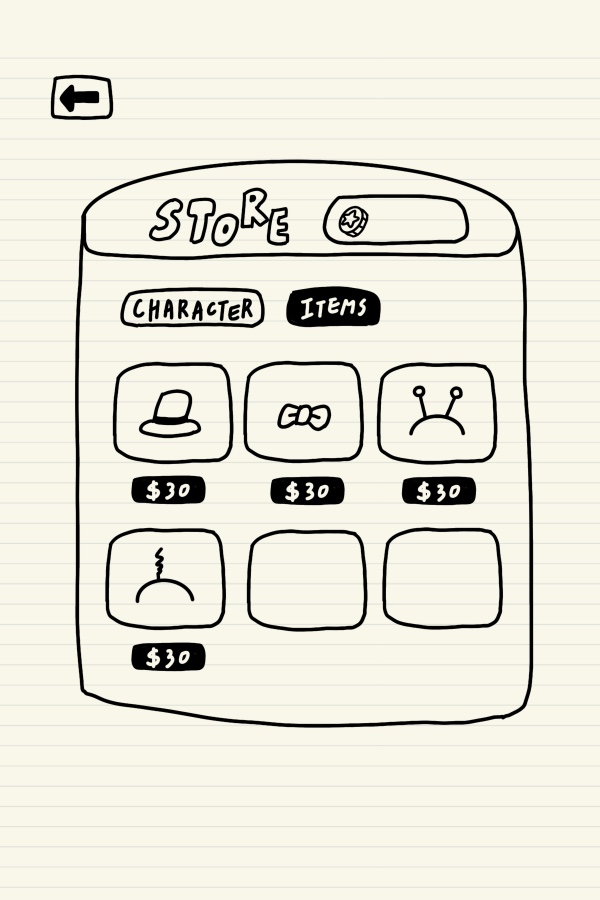 STORE
CHARACTER ITEMS
$30 $30 $30
$30